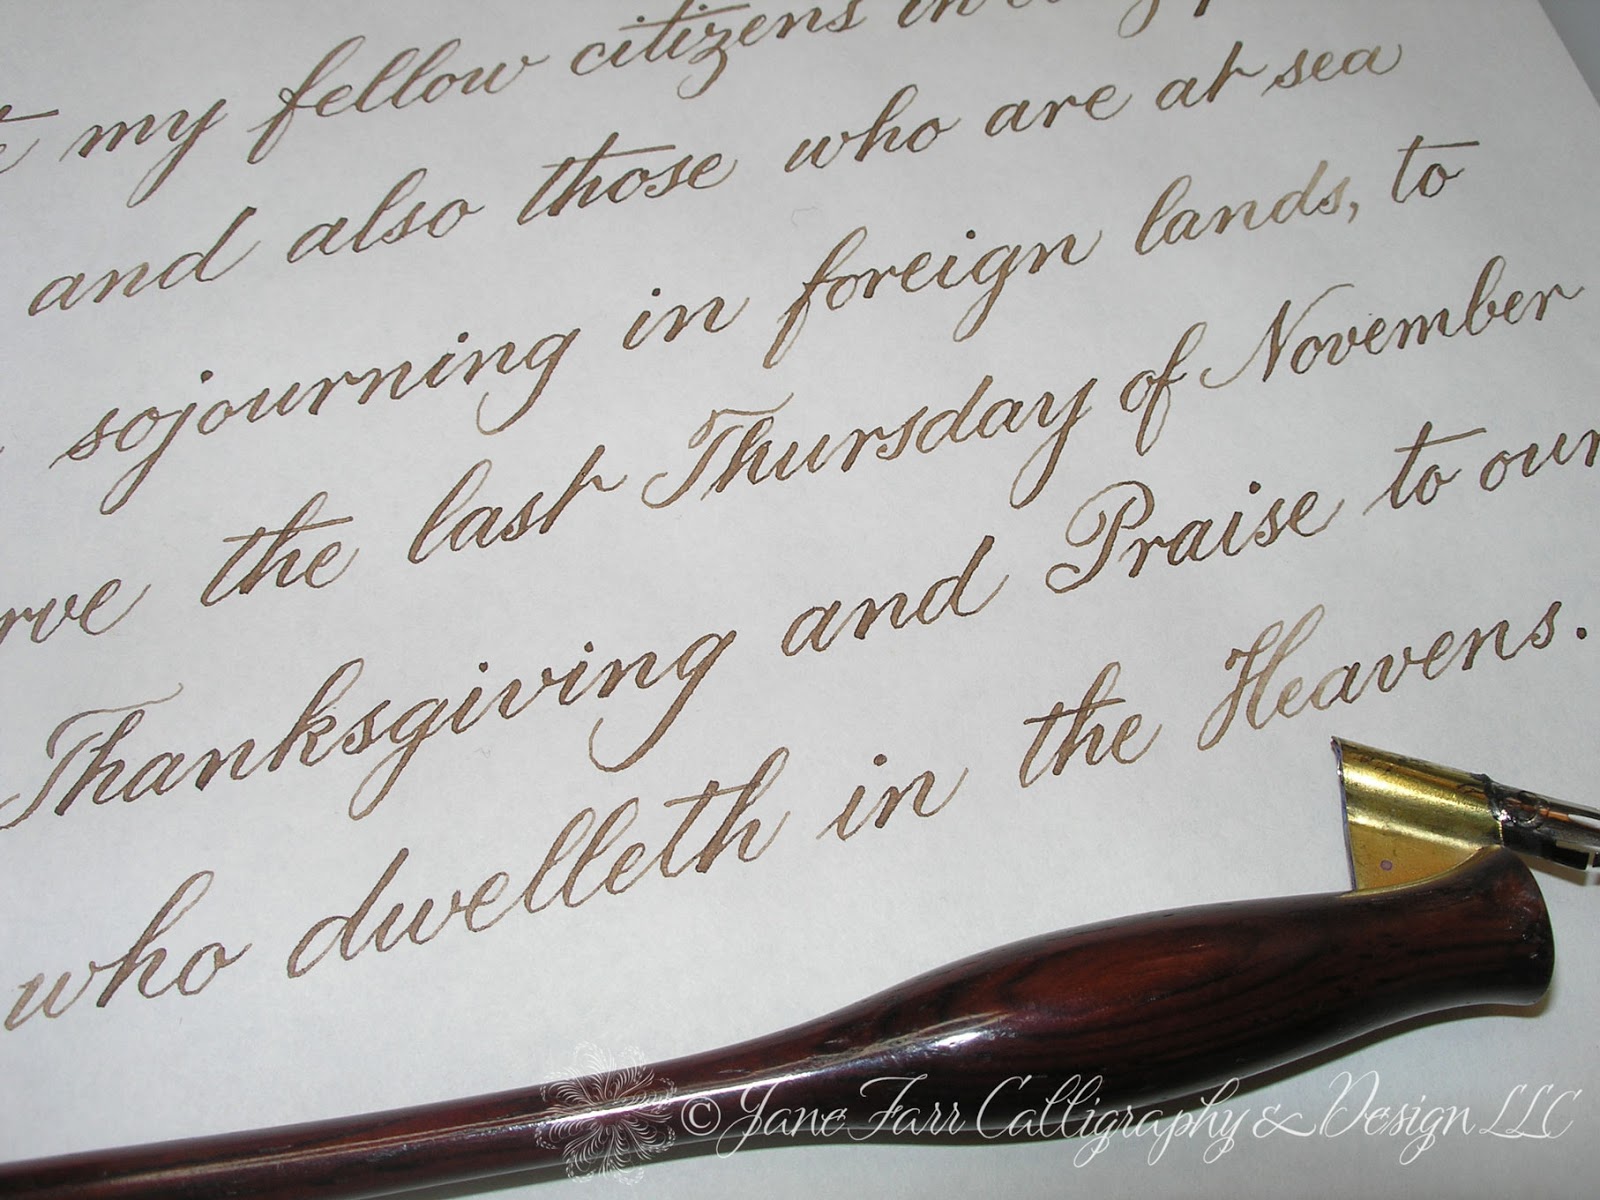 my fellow citizens in
and also those who are at sea
sojourning in foreign lands, to
rve the last Thursday of November
Thanksgiving and Praise to our
who dwelleth in the Heavens.
© Jane Farr Calligraphy & Design LLC